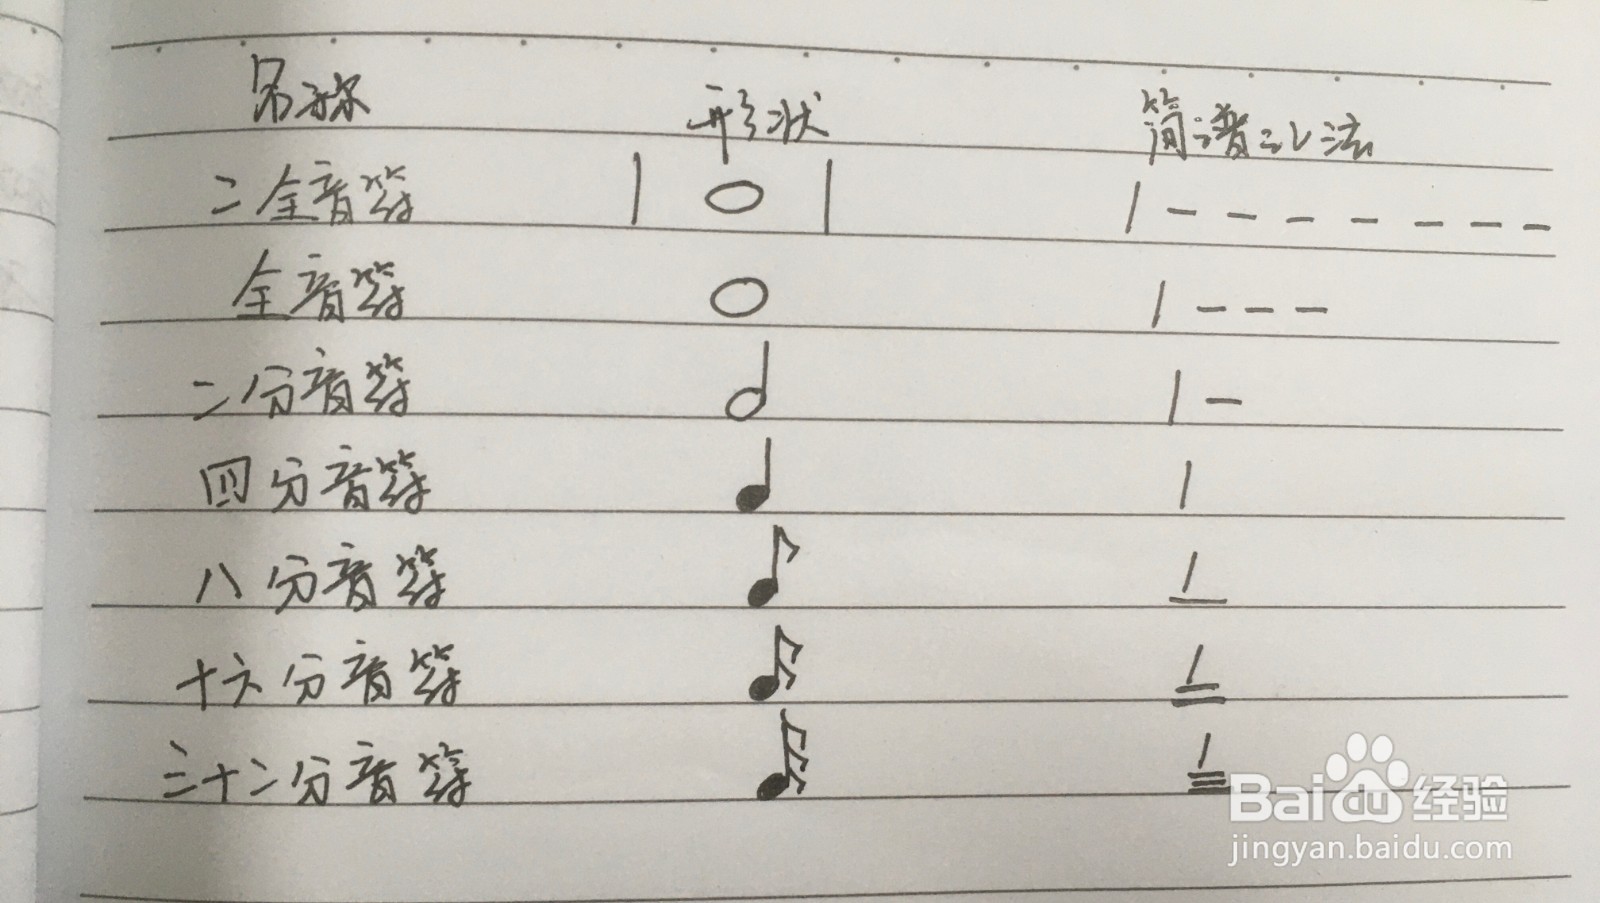 名称 形状 简谱记法
二全音符 1 - - - - - - -
全音符 1 - - -
二分音符 1 -
四分音符 1
八分音符 1
十六分音符 1
三十二分音符 1
Bai du 经验
jingyan.baidu.com